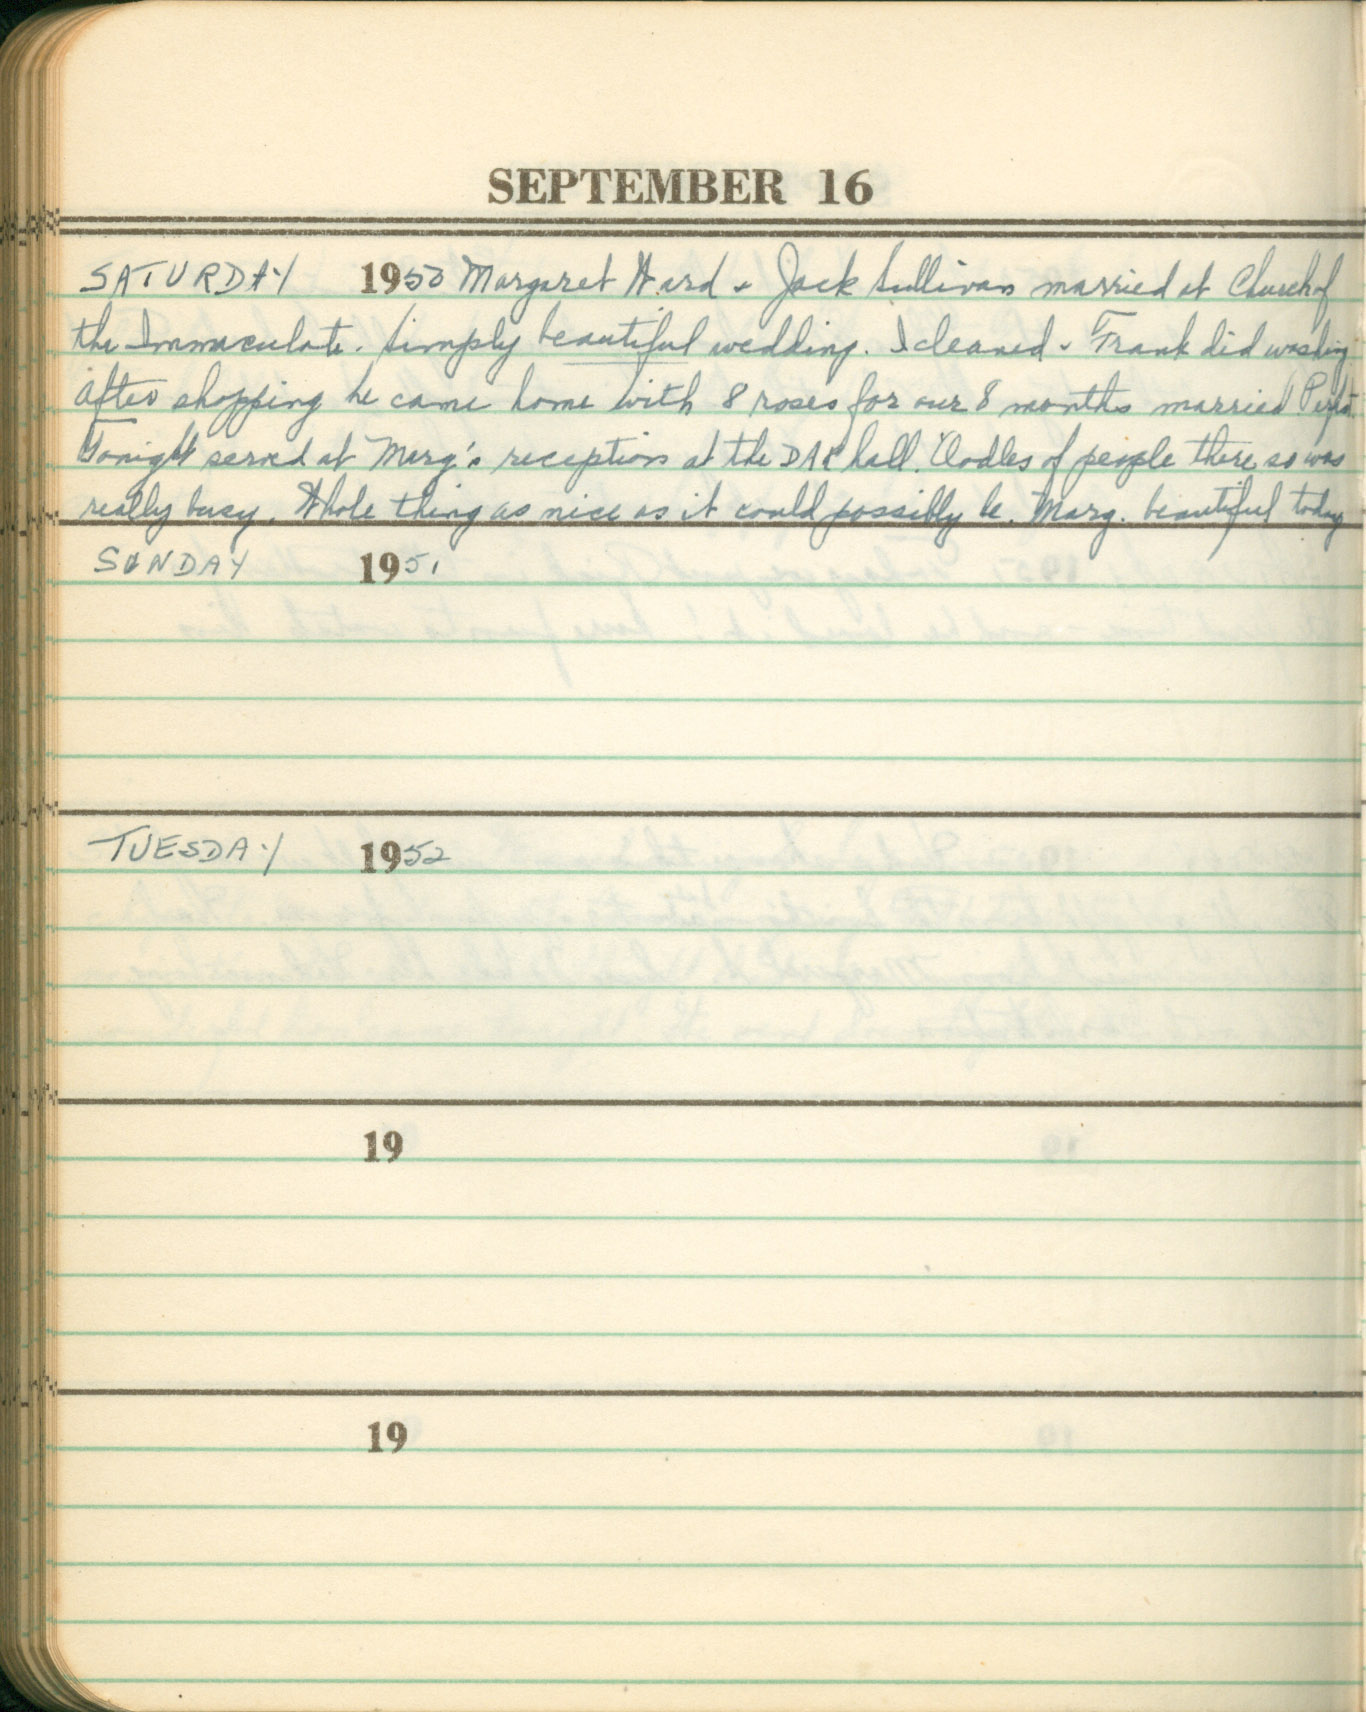 SEPTEMBER 16
SATURDAY 1950 Margaret Ward + Jack Sullivan married at Church of
the Immaculate. Simply beautiful wedding. I cleaned + Frank did washing
After shopping he came home with 8 roses for our 8 months married!
Tonight served at Marg's reception at the DAR hall. Oodles of people there so was
really busy. Whole thing as nice as it could possibly be. Marg. beautiful today
SUNDAY 1951
TUESDAY 1952
19
19